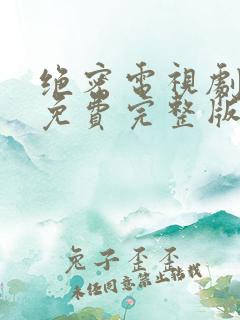 绝密電視劇
免費完整版
兔子歪歪
未经同意禁止转载